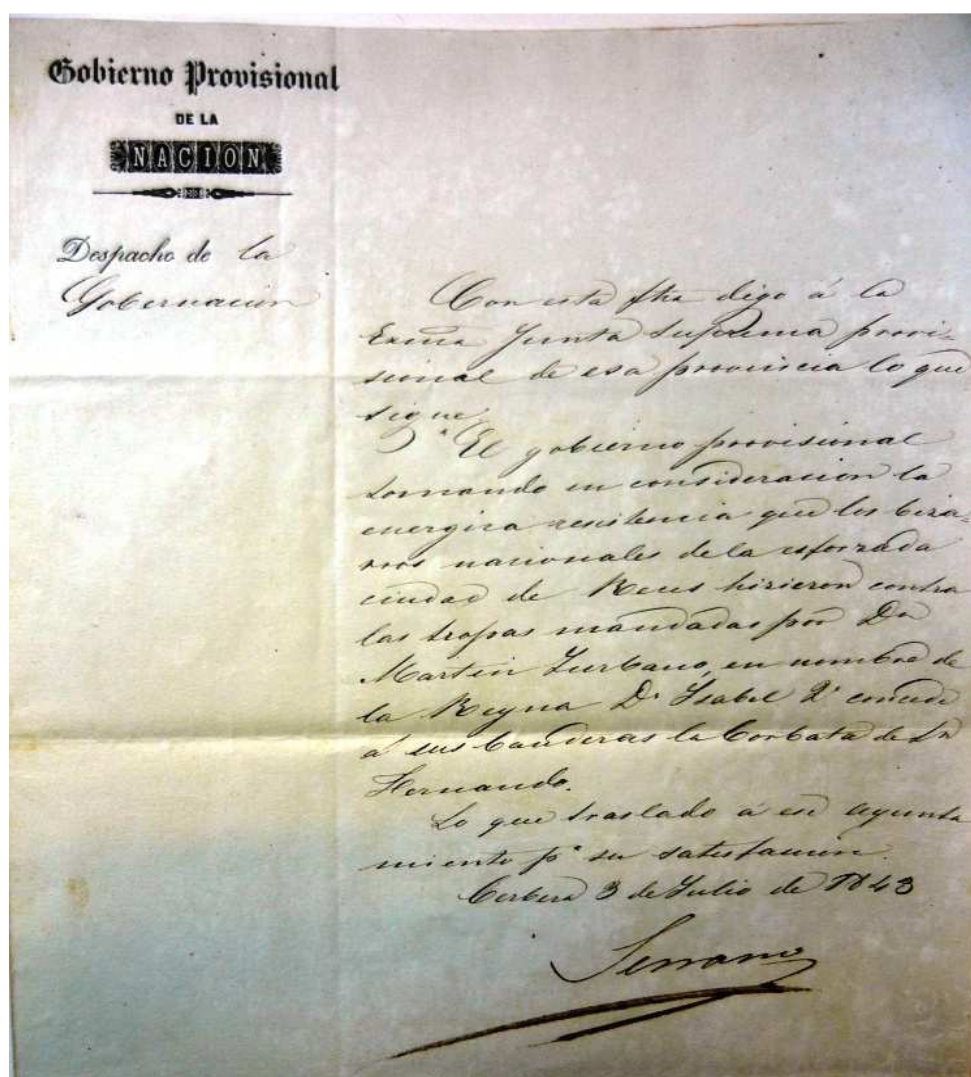 Gobierno Provisional
DE LA
NACION
Despacho de la
Gobernacion
Con esta fha digo á la
Exma Junta Suprema provi-
sional de esa provincia lo que
sigue
"El gobierno provisional
tomando en consideracion la
energica resistencia que los biza-
rros nacionales de la esforzada
ciudad de Reus hicieron contra
las tropas mandadas por Dn
Martin Zurbano, en nombre de
la Reyna Da Ysabel 2a concede
á sus banderas la Corbata de Sn
Fernando.
Lo que traslado á ese ayunta
miento pa su satisfaccion.
Cerbera 3 de Julio de 1843
Serrano